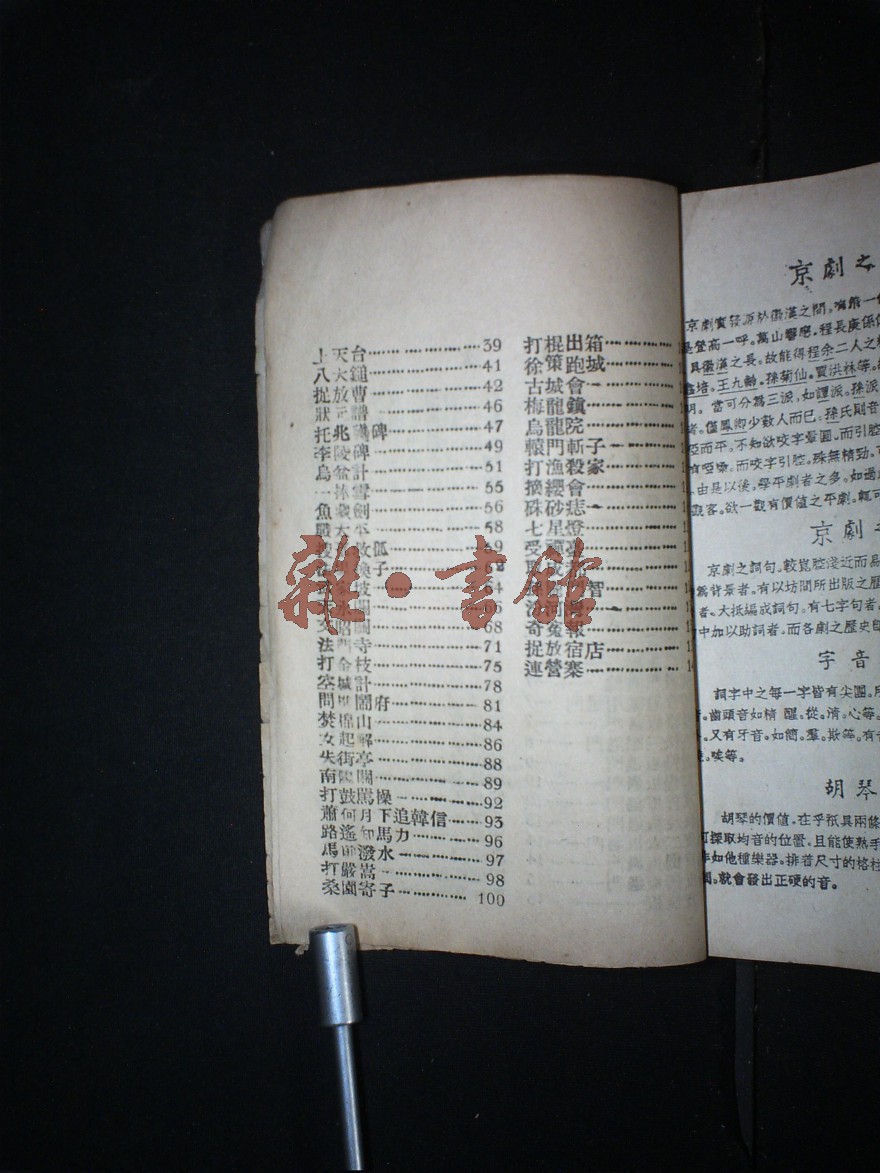 上天台 39
八大鎚 41
捉放曹 42
狀元譜 46
托兆碰碑 47
李陵碑 49
烏盆計 51
一捧雪 55
魚藏劍 56
58
孤 59
子 62
坡 64
關 66
文昭關 68
法門寺 71
打金枝 75
空城計 78
問樵鬧府 81
焚棉山 84
女起解 86
失街亭 88
南陽關 89
打鼓罵操 92
蕭何月下追韓信 93
路遙知馬力 96
馬前潑水 97
打嚴嵩 98
桑園寄子 100
打棍出箱
徐策跑城
古城會
梅龍鎮
烏龍院
轅門斬子
打漁殺家
摘纓會
硃砂痣
七星燈
受禪臺
智
奇冤報
捉放宿店
連營寨
雜·書館
京劇之
京劇實發源於徽漢之間。
是登高一呼。萬山響應。程長庚係
具徽漢之長。故能得程余二人之
培。王九齡。孫菊仙。賈洪林等。
明。當可分為三派，如譚派。孫派
者。僅鳳卿少數人而已。孫氏則音
啞而平。不知欲咬字暈圓。而引腔
有啞嗓。而咬字引腔。殊無精勁。
由是以後。學平劇者之多。如過
觀客。欲一觀有價值之平劇。輒可
京劇之
京劇之詞句。較崑腔淺近而
為背景者。有以坊間所出版之歷
者。大抵編成詞句。有七字句者。
中加以助詞者，而各劇之歷史
字音
詞字中之每一字皆有尖團。
。齒頭音如精 醒。從。清。心等。
。又有牙音。如簡。羣。斯等。有
。唉等。
胡琴
胡琴的價值，在乎祇具兩條
可採取均音的位置。且能使熟手
非如他種樂器。排着尺寸的格柱
。就會發出正硬的音。